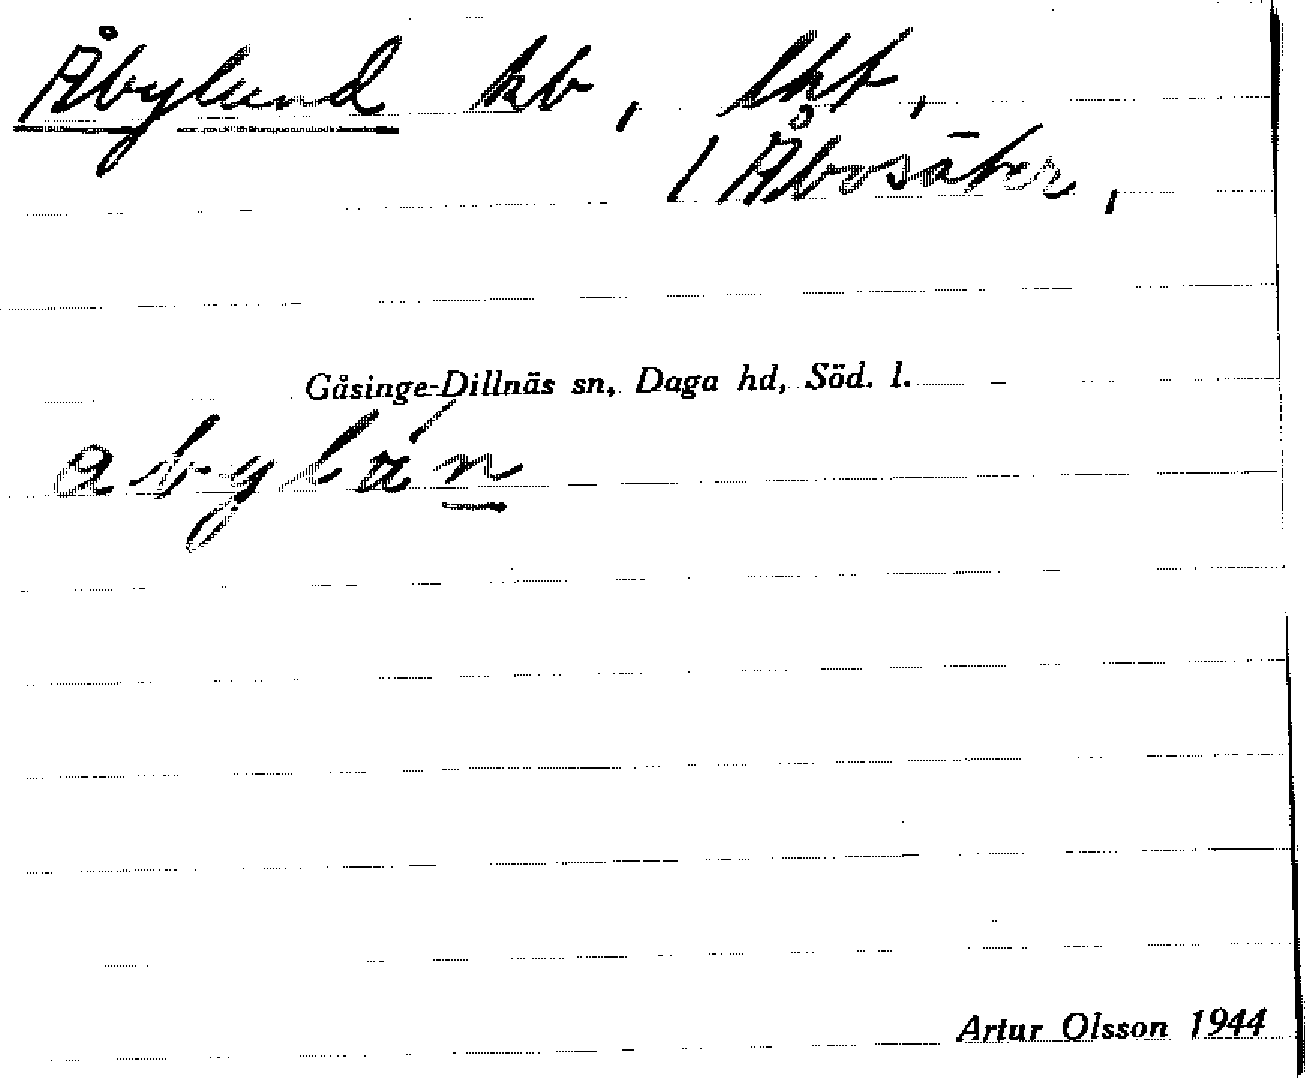 Åbylund kb, lht,
1 Åbosäter,
Gåsinge-Dillnäs sn, Daga hd, Söd. l.
Artur Olsson 1944